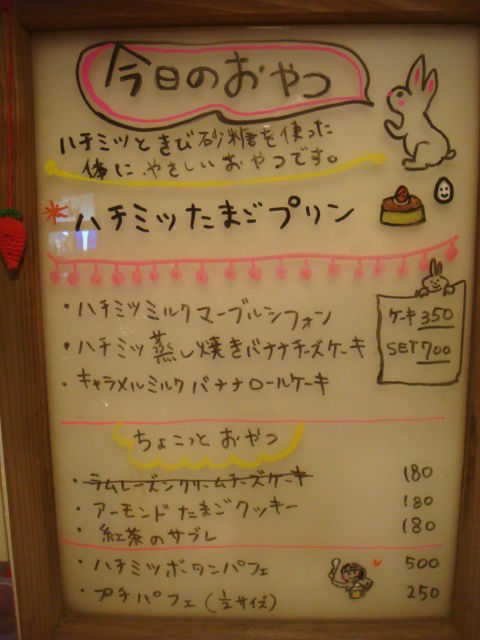 今日のおやつ
ハチミツときび砂糖を使った
体に、やさしいおやつです。
ハチミツたまごプリン
・ハチミツミルクマーブルシフォン
・ハチミツ蒸し焼きバナナチーズケーキ
・キャラメルミルクバナナロールケーキ
ケーキ 350
SET 700
ちょこっとおやつ
・ラムレーズンクリームチーズケーキ 180
・アーモンドたまごクッキー 180
・紅茶のサブレ 180
・ハチミツボタンパフェ 500
・プチパフェ(1/2サイズ) 250